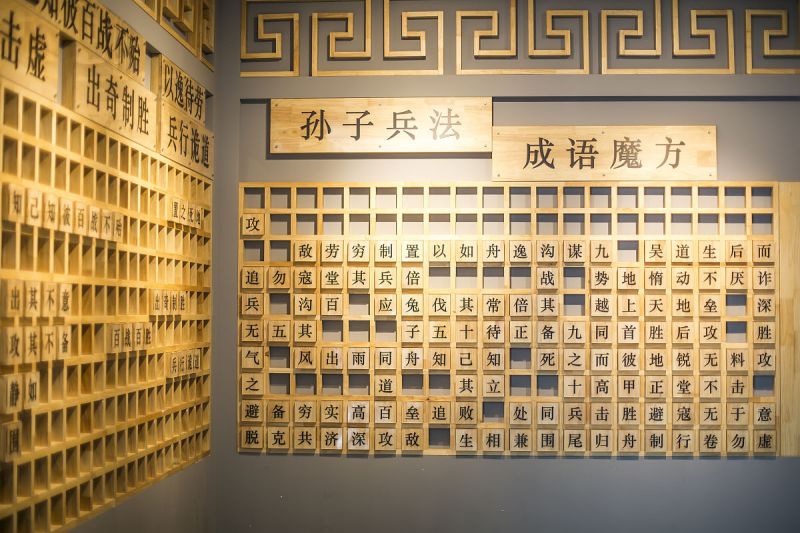 知彼百战不殆
击虚
出奇制胜
以逸待劳
兵行诡道
知己知彼百战不殆
置之死地
出其不意
出奇制胜
攻其不备
百战百胜
兵行诡道
静如
围
孙子兵法
成语魔方
攻
敌劳穷制置以如舟逸沟谋九 吴道生后而
追勿寇堂其兵倍 战 势地惰动不厌诈
兵 沟百 应兔伐其常倍其 越上天地垒 深
无五其 子五十待正备九同首胜后攻 胜
气 风出雨同舟知己知 死之而彼地锐无料攻
之 道 其立 十高甲正堂不击
避备穷实高百垒追败 处同兵击胜避寇无于意
脱克共济深攻敌 生相兼围尾归舟制行卷勿虚